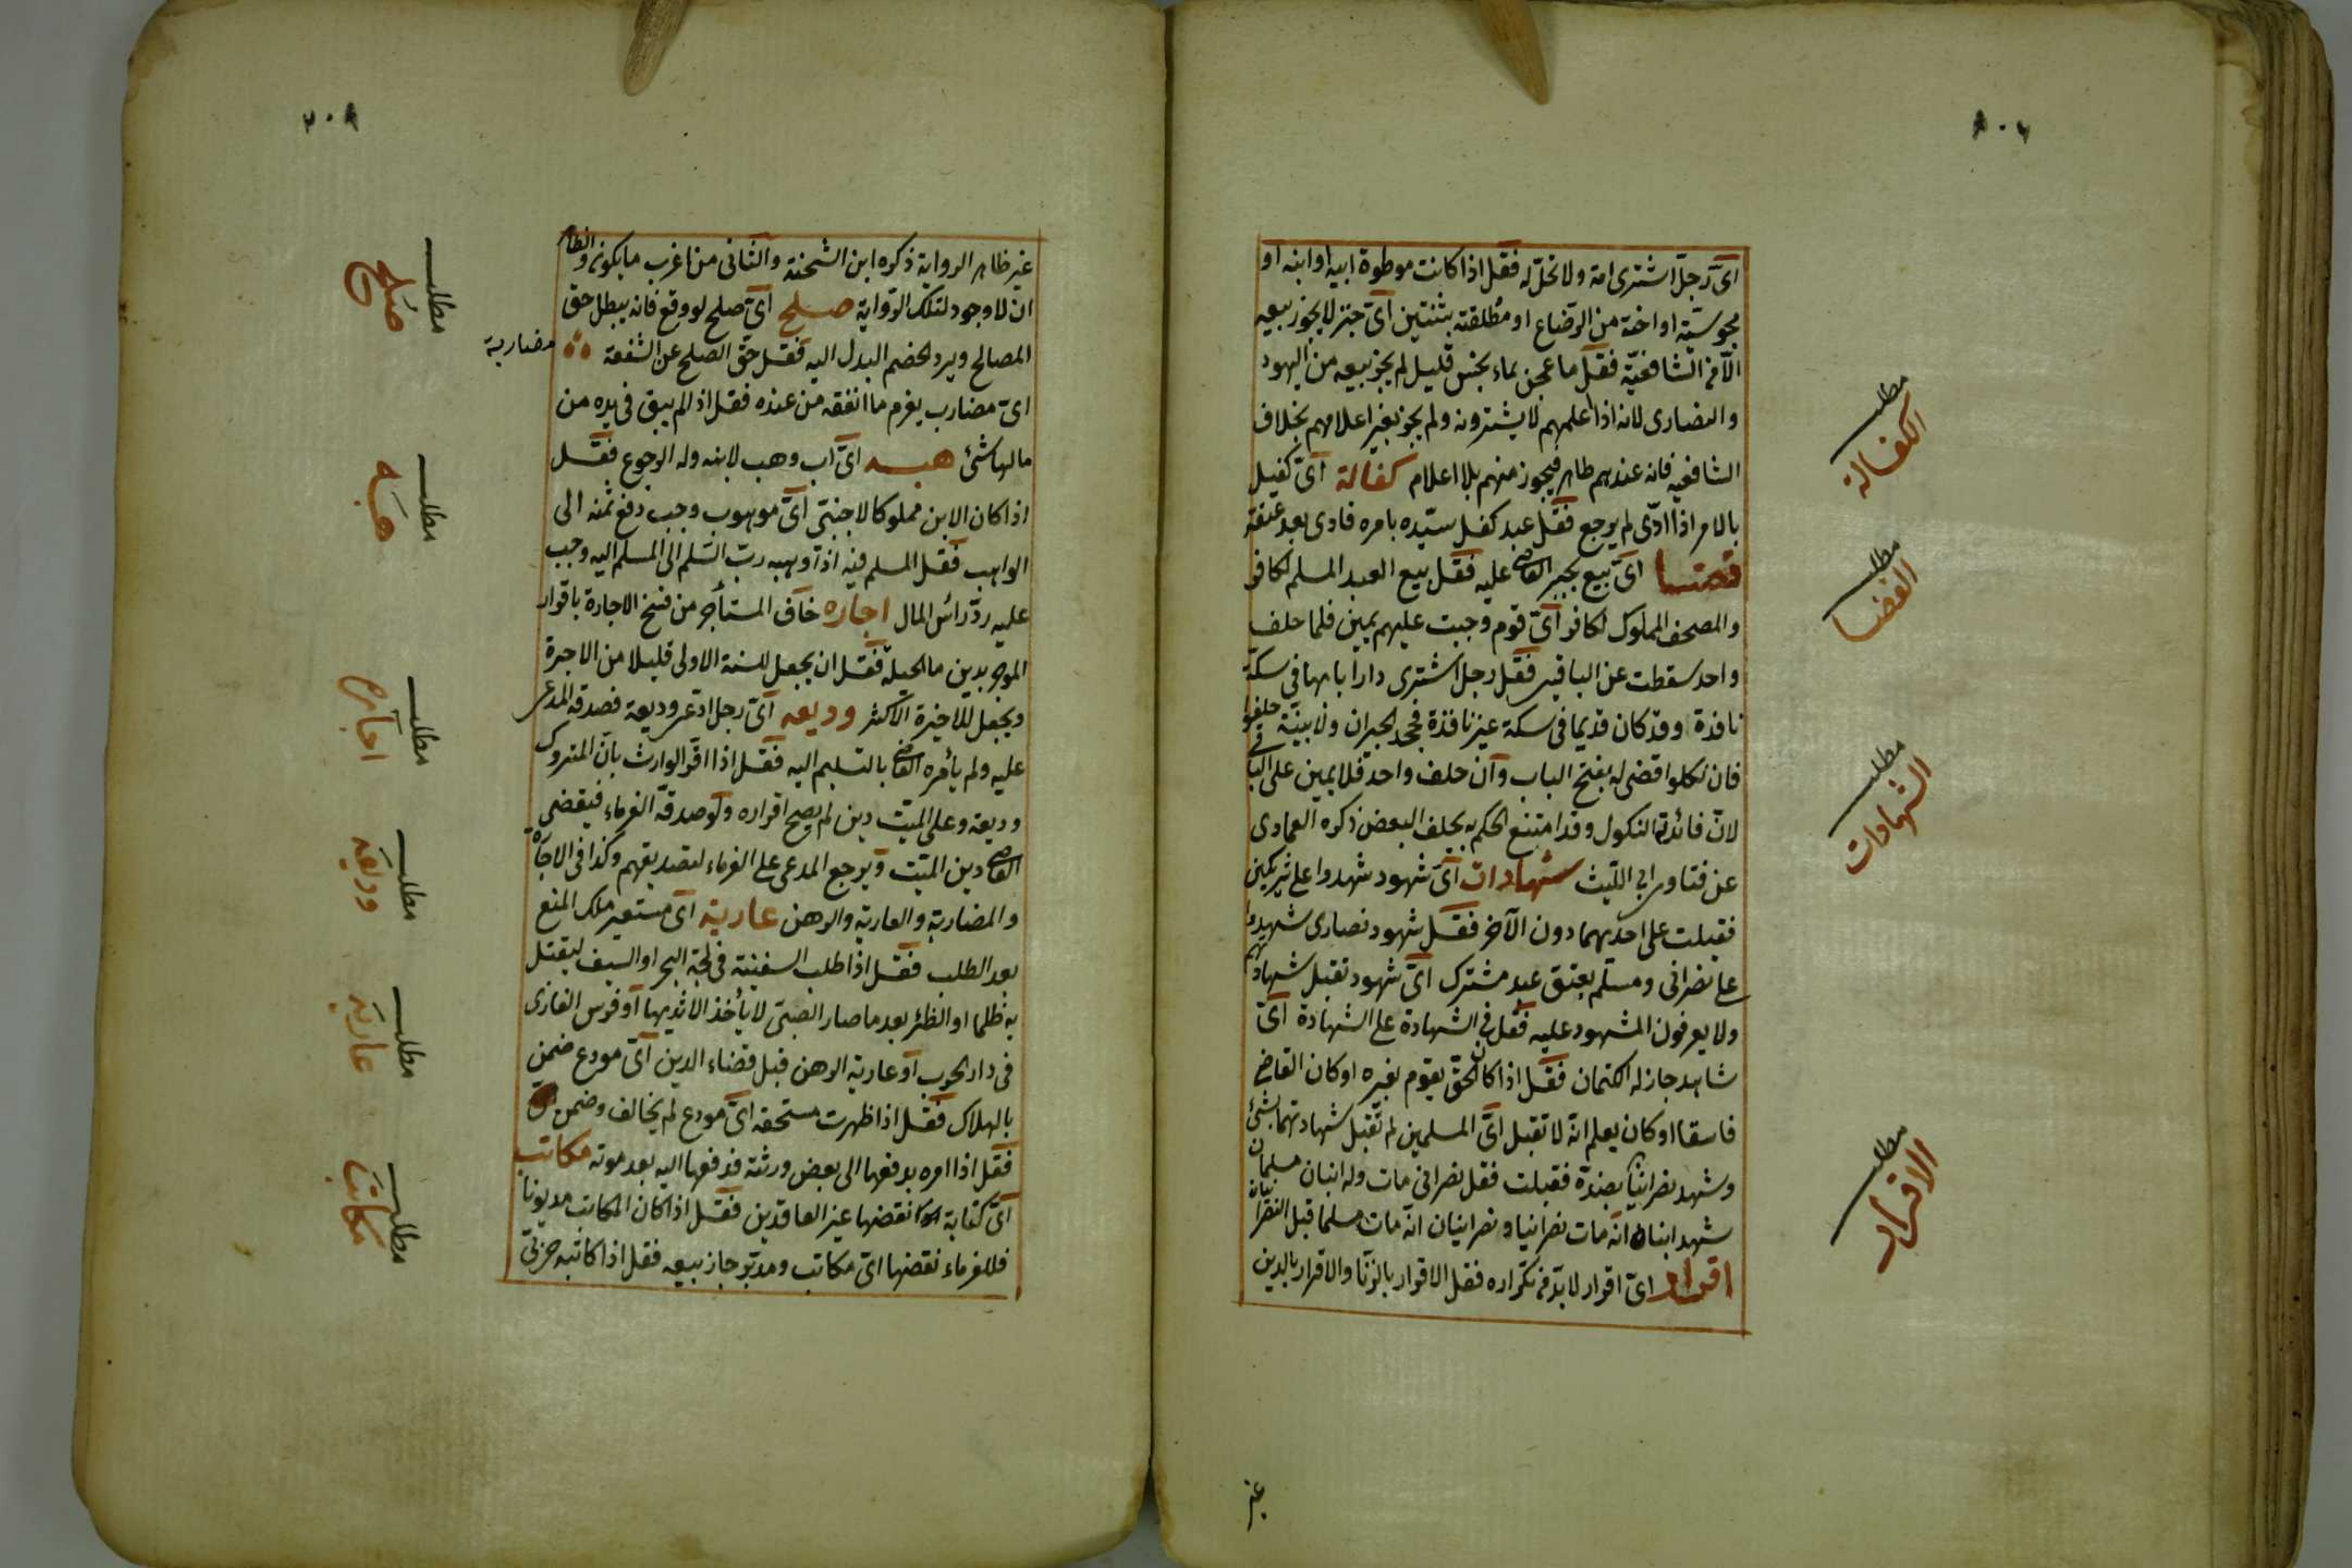 اى رجل اشترى امة ولا تحل له فقل اذا كانت موطوة ابيه او ابنه او
مجوسية او اخته من الرضاع او مطلقته بثنتين اى خبز لا يجوز بيعه
الا من الشافعية فقل ما عجن بماء نجس قليل لم يجز بيعه من اليهود
والنصارى لانه اذا اعلمهم لا يشترونه ولم يجز بغير اعلامهم بخلاف
الشافعيه فانه عندهم طاهر فيجوز منهم بلا اعلام كفالة اى كفيل
بالامر اذا ادى لم يرجع فقل عبد كفل سيده بامره فادى بعد عتقه
قضا اى بيع يجبر القاضى عليه فقل بيع العبد المسلم لكافر
والمصحف المملوك لكافر اى قوم وجبت عليهم يمين فلما حلف
واحد سقطت عن الباقين فقل رجل اشترى دارا بابها فى سكة
نافذة وقد كان قديما فى سكة غير نافذة فجحد الجيران ولا بينة حلفوا
فان نكلوا قضى له بفتح الباب وان حلف واحد فلا يمين على الباقى
لان فائدة النكول وقد امتنع الحكم به بحلف البعض ذكره العمادى
عن فتاوى ابى الليث شهادات اى شهود شهدوا على شريكين
فقبلت على احدهما دون الآخر فقل شهود نصارى شهدوا
على نصرانى ومسلم بعتق عبد مشترك اى شهود تقبل شهادتهم
ولا يعرفون المشهود عليه فقل فى الشهادة على الشهادة اى
شاهد جاز له الكتمان فقل اذا كان الحق يقوم بغيره او كان القاضى
فاسقا او كان يعلم انه لا تقبل اى المسلمين لم تقبل شهادتهما بشئ
وشهد نصرانيان بضده فقبلت فقل نصرانى مات وله ابنان مسلمان
شهد ابناه انه مات نصرانيا ونصرانيان انه مات مسلما قبل النصرانيان
اقرار اى اقرار لا بد من تكراره فقل الاقرار بالزنا والاقرار بالدين
غير
مطلب
الكفالة
مطلب
القضا
مطلب
الشهادات
مطلب
الاقرار
٢٠٨
غير ظاهر الرواية ذكره ابن الشحنة والثانى من اغرب ما يكون والظاهر
ان لا وجود لتلك الرواية صلح اى صلح لو وقع فانه يبطل حق
المصالح ويرد الخصم البدل اليه فقل حق الصلح عن الشفعة مضاربة
اى مضارب يغرم ما انفقه من عنده فقل اذا لم يبق فى يده من
مالها شئ هبه اى اب وهب لابنه وله الرجوع فقل
اذا كان الابن مملوكا لاجنبى اى موهوب وجب دفع ثمنه الى
الواهب فقل المسلم فيه اذا وهبه رب السلم الى المسلم اليه وجب
عليه رد رأس المال اجاره خاف المستأجر من فسخ الاجارة باقرار
الموجر بدين ما الحيلة فقل ان يجعل للسنة الاولى قليلا من الاجرة
ويجعل للاخيرة الاكثر وديعه اى رجل ادعى وديعة فصدقه المدعى
عليه ولم يأمره القاضى بالتسليم اليه فقل اذا اقر الوارث بان المتروك
وديعة وعلى الميت دين لم يصح اقراره ولو صدقه الغرماء فيقضى
القاضى دين الميت ويرجع المدعى على الغرماء لتصديقهم وكذا فى الاجارة
والمضاربة والعارية والرهن عارية اى مستعير ملك المنع
بعد الطلب فقل اذا طلب السفينة فى لجة البحر او السيف ليقتل
به ظلما او الظئر بعد ما صار الصبى لا يأخذ الا ثديها او فرس الغازى
فى دار الحرب او عارية الرهن قبل قضاء الدين اى مودع ضمن
بالهلاك فقل اذا ظهرت مستحقه اى مودع لم يخالف وضمن
فقل اذا امره بدفعها الى بعض ورثته فدفعها اليه بعد موته مكاتب
اى كتابة نقضها غير العاقدين فقل اذا كان المكاتب مديونا
فللغرماء نقضها اى مكاتب ومدبر جاز بيعه فقل اذا كاتبه حربى
مطلب
صلح
مطلب
هبه
مطلب
اجاره
مطلب
وديعه
مطلب
عاريه
مطلب
مكاتب